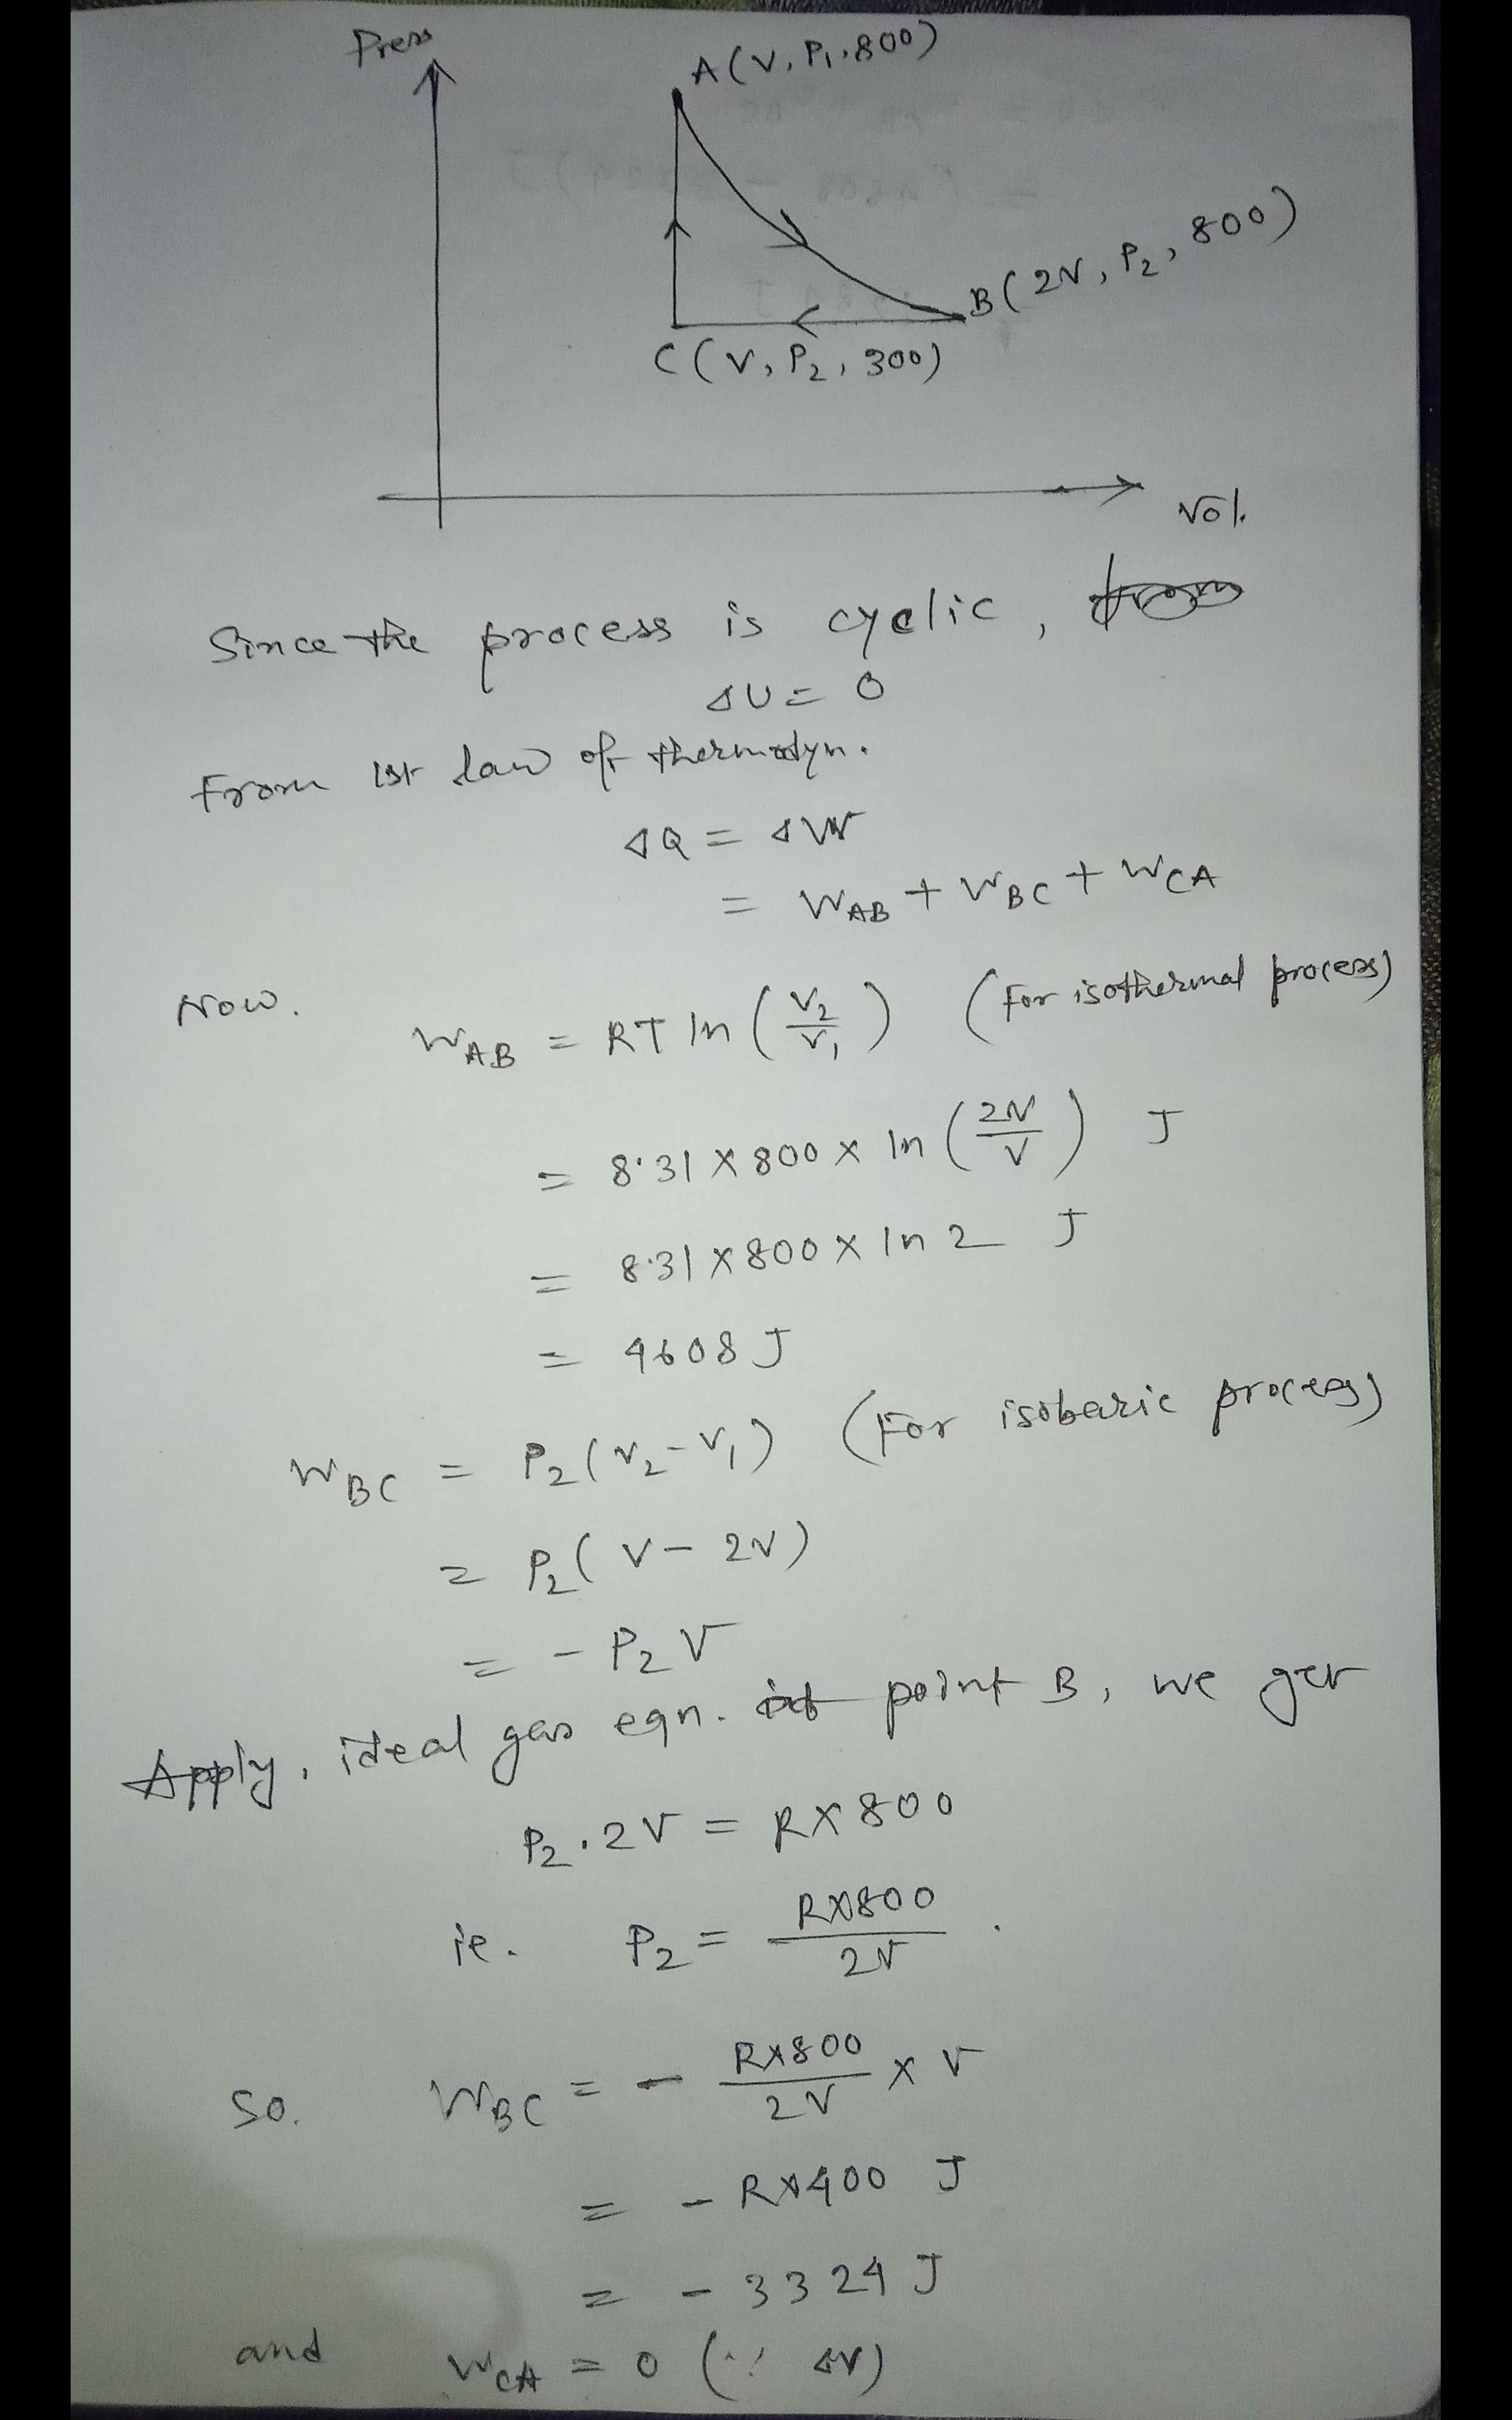 Press
A(V, P₁, 800)
B(2V, P₂, 800)
C(V, P₂, 300)
Vol.
Since the process is cyclic,
ΔU = 0
From 1st law of thermodyn.
ΔQ = ΔW
= W_AB + W_BC + W_CA
Now. W_AB = RT ln (V₂/V₁) (For isothermal process)
= 8.31 × 800 × ln (2V/V) J
= 8.31 × 800 × ln 2 J
= 4608 J
W_BC = P₂(V₂ - V₁) (For isobaric process)
= P₂(V - 2V)
= - P₂V
Apply, ideal gas eqn. at point B, we get
P₂.2V = R×800
ie. P₂ = R×800/2V .
So. W_BC = - R×800/2V × V
= - R×400 J
= - 3324 J
and W_CA = 0 (∵ ΔV)